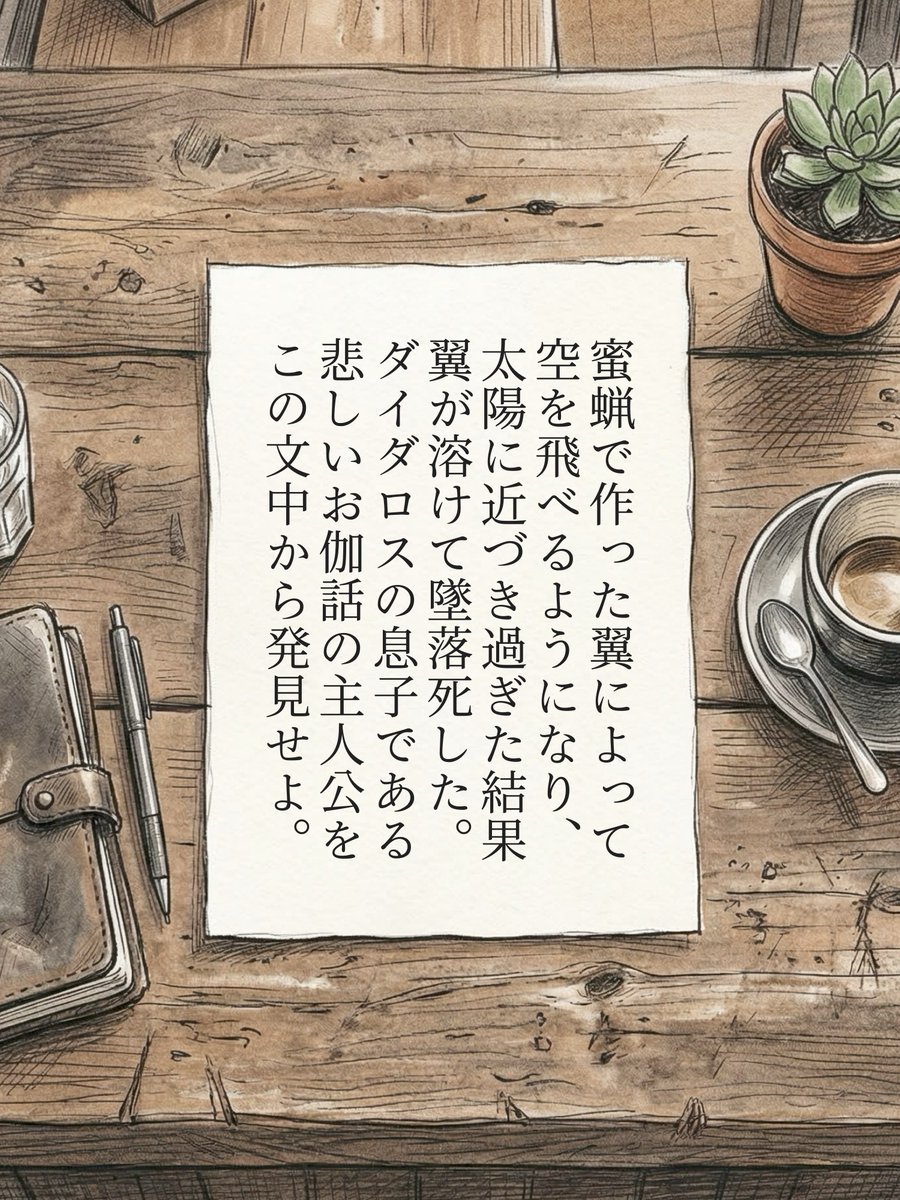 蜜蝋で作った翼によって
空を飛べるようになり、
太陽に近づき過ぎた結果
翼が溶けて墜落死した。
ダイダロスの息子である
悲しいお伽話の主人公を
この文中から発見せよ。